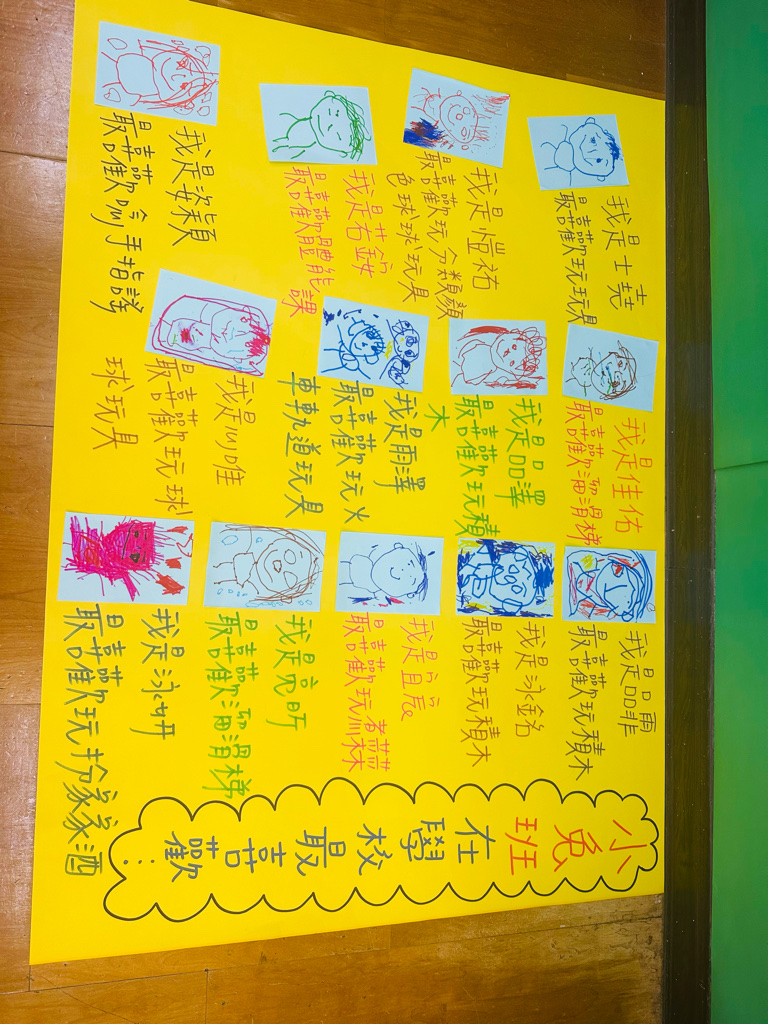 小兔班在學校最喜歡...
我是士堯
最喜歡玩玩具
我是佳佑
最喜歡溜滑梯
我是品霏
最喜歡玩積木
我是愷祐
最喜歡玩分類顏
色球球玩具
我是品澤
最喜歡玩積
木
我是泳銘
最喜歡玩積木
我是若
最喜歡體能課
我是雨澤
最喜歡玩火
車軌道玩具
我是辰
最喜歡玩
我是姿穎
最喜歡唸手指謠
我是小唯
最喜歡玩球
球玩具
我是亮昕
最喜歡溜滑梯
我是泳妍
最喜歡玩扮家家酒